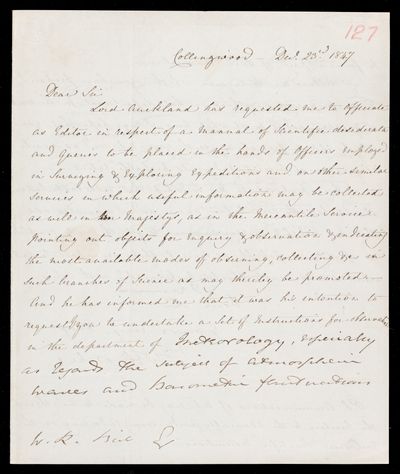 127
Collingwood - Decr. 23d 1847
Dear Sir
Lord Auckland has requested me to Officiate
as Editor in respect of a Manual of Scientific desiderata
and Queries to be placed in the hands of Officers employed
in Surveying & Exploring Expeditions and on other similar
services in which useful information may be collected
as well in Her Majestys, as in the Mercantile Service
Pointing out objects for Enquiry & observation & indicating
the most available modes of observing, collecting &c in
such branches of Science as may thereby be promoted -
And he has informed me that it was his intention to
request you to undertake a Set of Instructions for observation
in the department of Meteorology, Especially
as regards the subject of Atmospheric
waves and Barometric fluctuations
W. R. Birt Esq